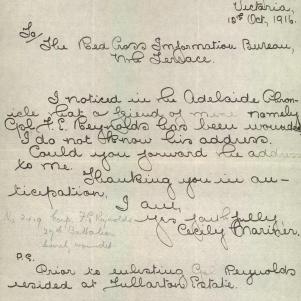 Victoria,
10th Oct, 1916.
To/
The Red Cross Information Bureau,
Nth Terrace.
I noticed in the Adelaide Chron-
icle that a friend of mine namely
Cpl F. E. Reynolds has been wounded
I do not know his address.
Could you forward the address
to me.
Thanking you in an-
ticipation,
I am,
Yrs faithfully
Cecily Mariner.
Corp. F. E. Reynolds
Battalion
wounded
P.S.
Prior to enlisting Cpl Reynolds
resided at Fullarton Estate.